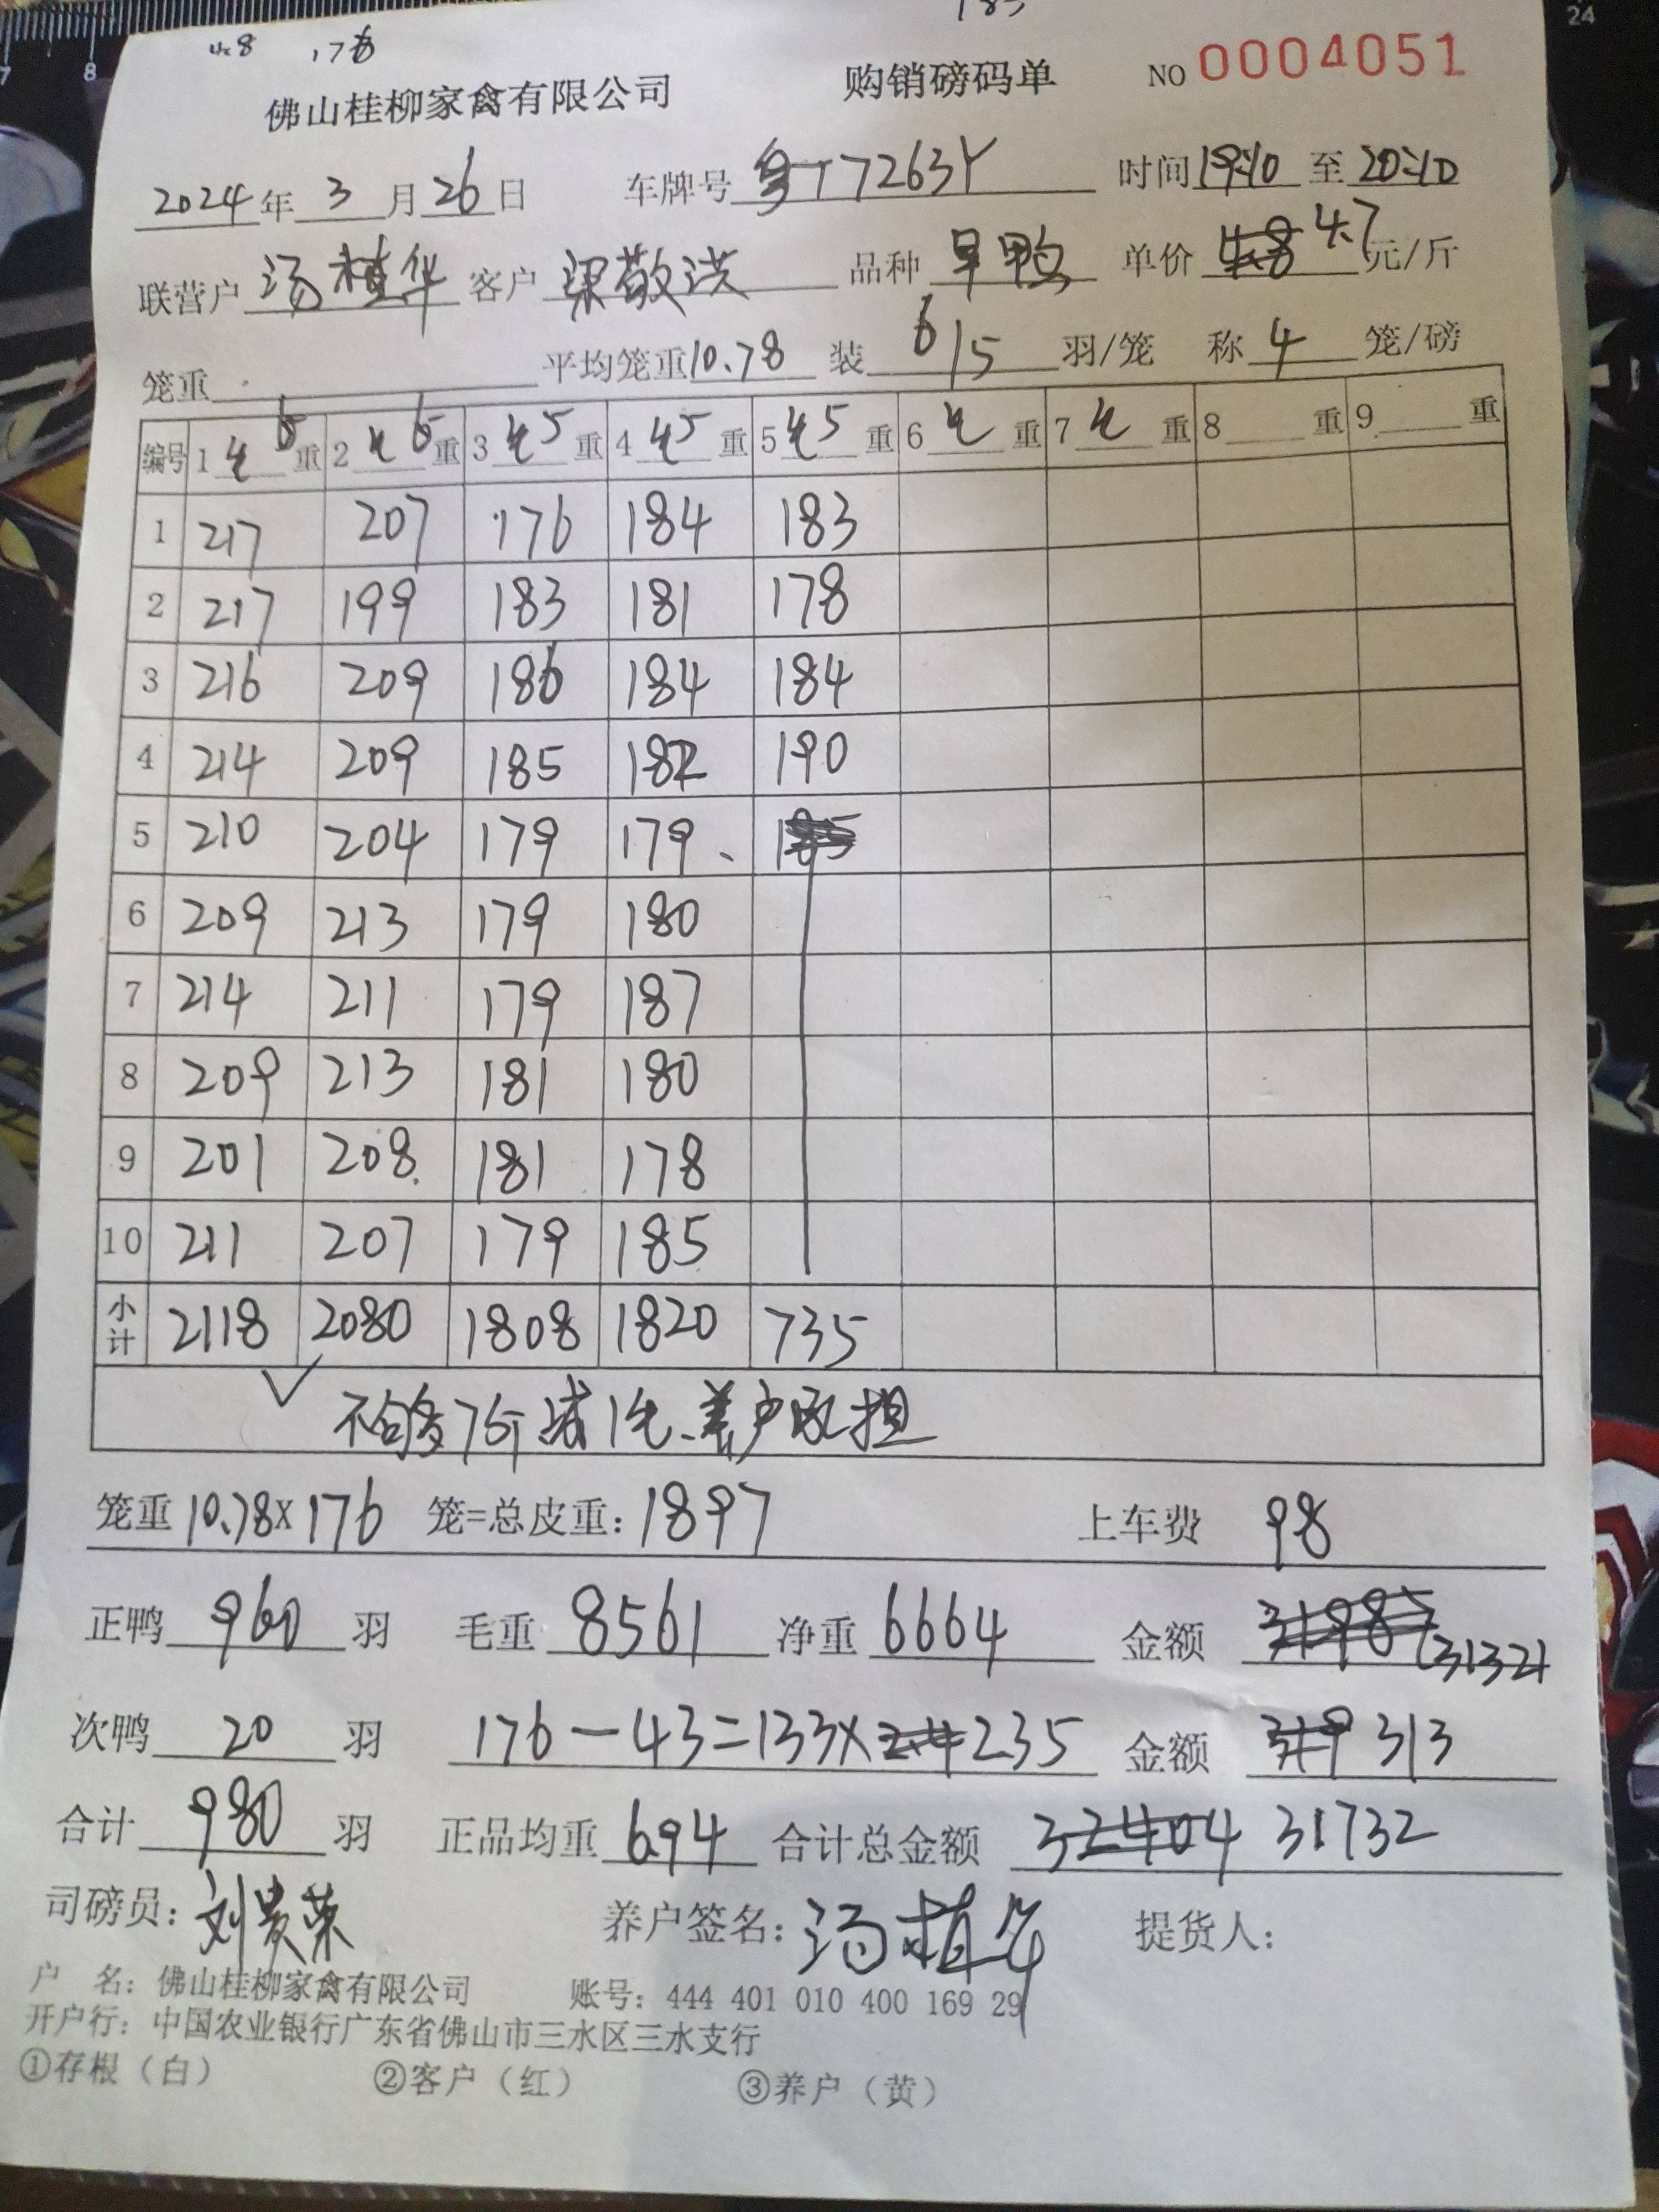 4.8 176 183
佛山桂柳家禽有限公司 购销磅码单 NO 0004051
2024年 3 月 26 日 车牌号 粤T7263Y 时间 19:10 至 20:10
联营户 汤植华 客户 梁敬洪 品种 旱鸭 单价 4.8 4.7 元/斤
笼重 平均笼重 10.78 装 6/5 羽/笼 称 4 笼/磅
编号 1 毛6 重 2 毛6 重 3 毛5 重 4 毛5 重 5 毛5 重 6 毛 重 7 毛 重 8 重 9 重
1 217 207 176 184 183
2 217 199 183 181 178
3 216 209 186 184 184
4 214 209 185 182 190
5 210 204 179 179 185
6 209 213 179 180
7 214 211 179 187
8 209 213 181 180
9 201 208 181 178
10 211 207 179 185
小计 2118 2080 1808 1820 735
不够7斤减1毛.养户承担
笼重 10.78×176 笼=总皮重: 1897 上车费 98
正鸭 960 羽 毛重 8561 净重 6664 金额 31987 31321
次鸭 20 羽 176-43=133× 2.4 2.35 金额 319 313
合计 980 羽 正品均重 6.94 合计总金额 32404 31732
司磅员: 刘贵荣 养户签名: 汤植华 提货人:
户 名: 佛山桂柳家禽有限公司 账号: 444 401 010 400 169 29
开户行: 中国农业银行广东省佛山市三水区三水支行
①存根(白) ②客户(红) ③养户(黄)